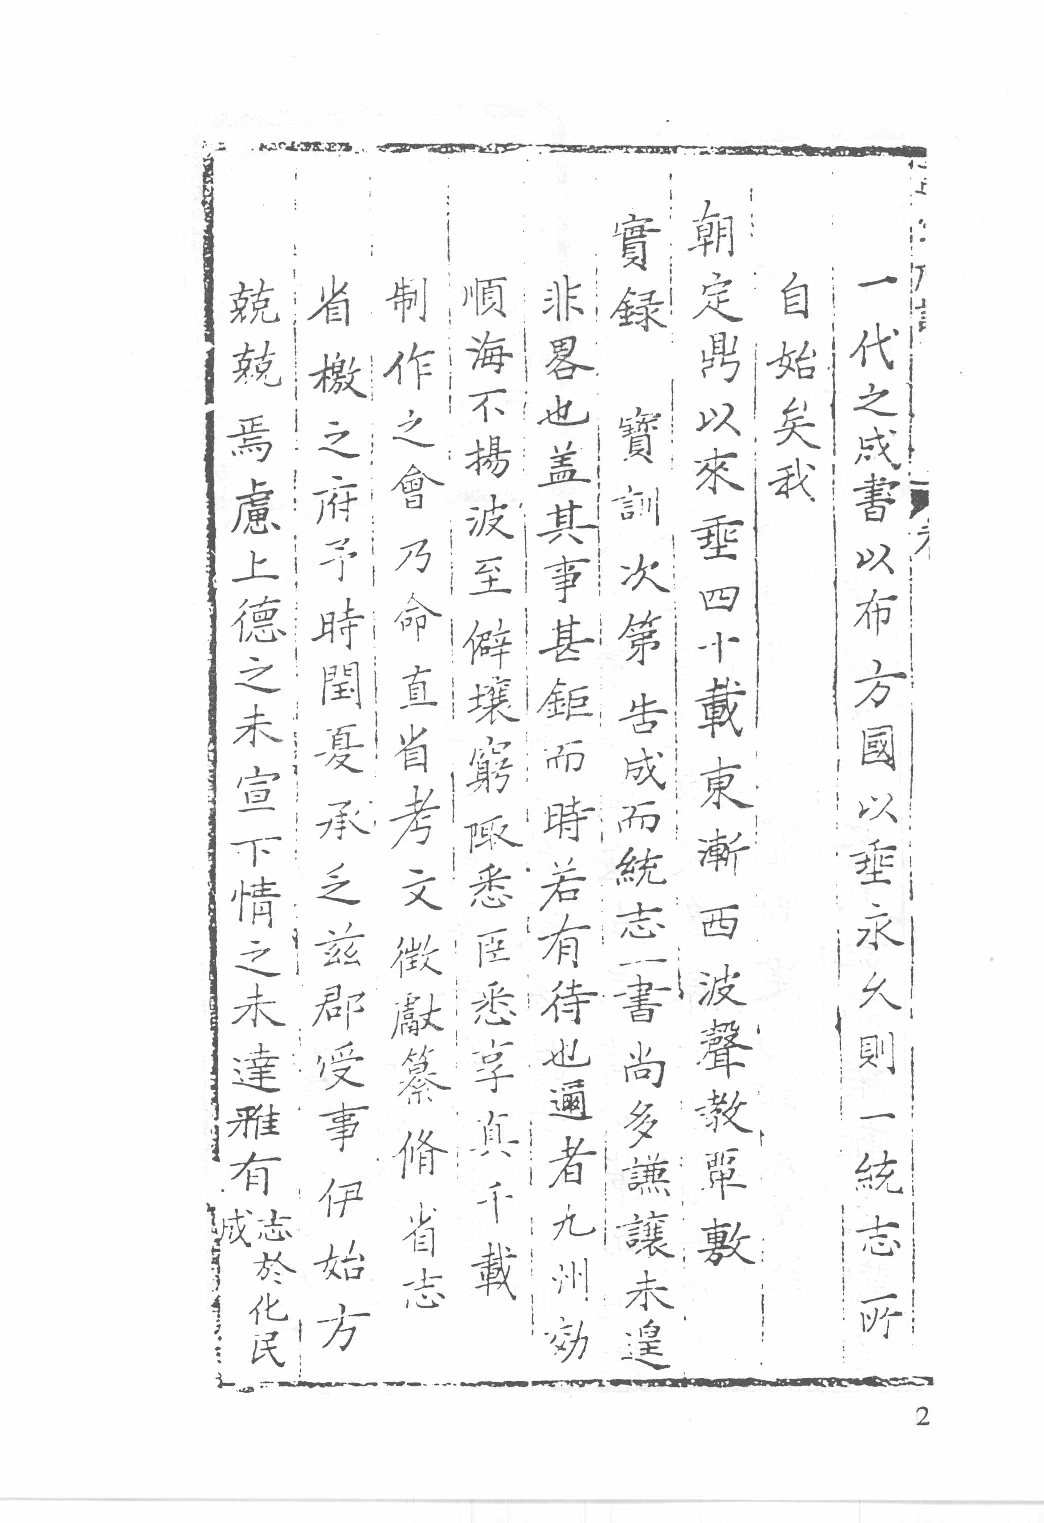 一代之成書以布方國以垂永久則一統志所
自始矣我
朝定鼎以來垂四十載東漸西波聲教覃敷
實録 寶訓次第告成而統志一書尚多謙讓未遑
非畧也盖其事甚鉅而時若有待也邇者九州効
順海不揚波至僻壤窮陬悉臣悉享真千載
制作之會乃命直省考文徵獻纂脩省志
省檄之府予時閏夏承乏兹郡受事伊始方
兢兢焉慮上德之未宣下情之未達雅有志於化民
成
2